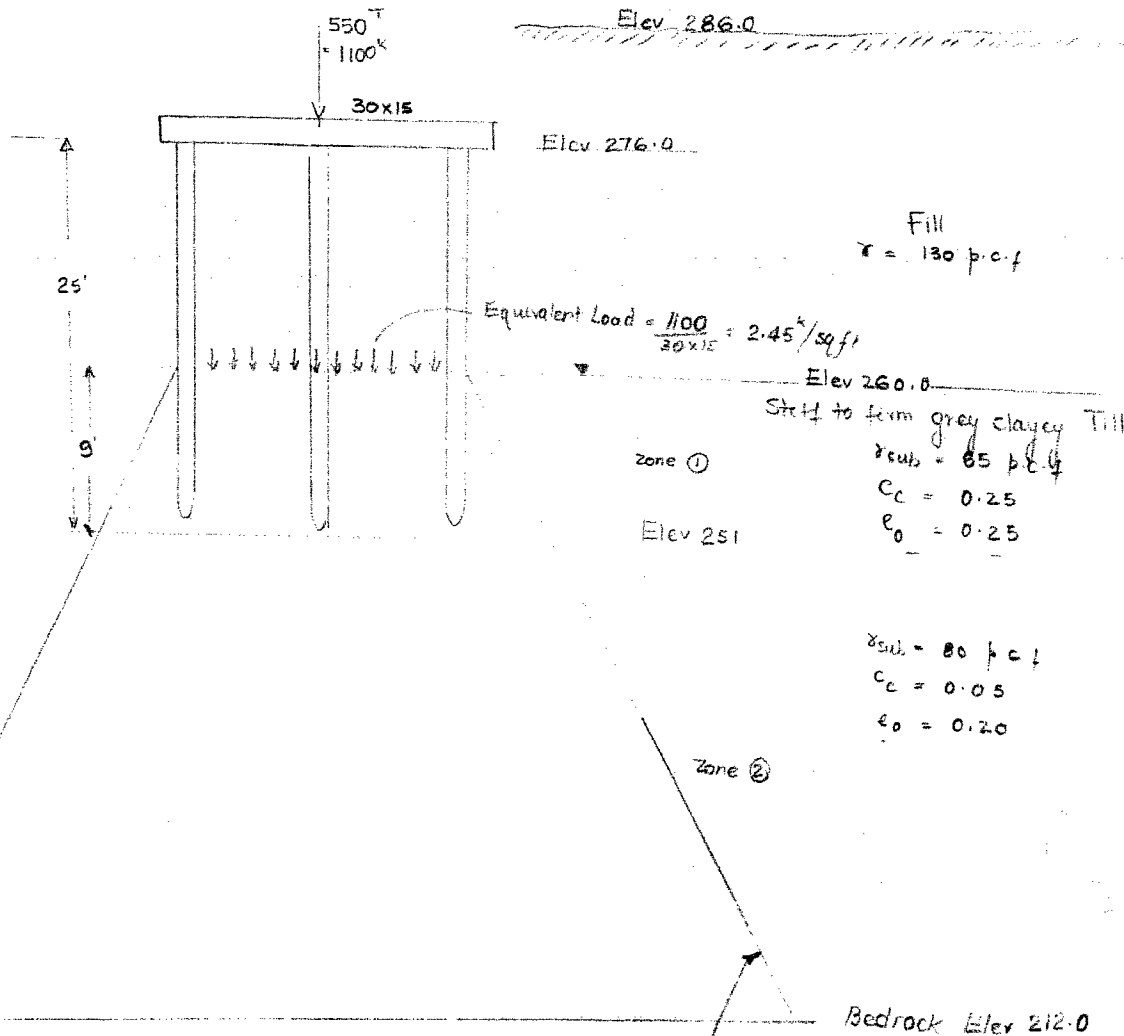 Elev 286.0
550ᵀ
= 1100ᵏ
30x15
Elev 276.0
Fill
γ = 130 p.c.f
25'
Equivalent Load = 1100 / 30x15 = 2.45ᵏ/sq ft
Elev 260.0
to firm grey clayey Till
9'
Zone ①
γsub = 85 p.c.f
Cc = 0.25
Elev 251
e₀ = 0.25
γsub = 80 p c f
Cc = 0.05
e₀ = 0.20
Zone ②
Bedrock Elev 212.0